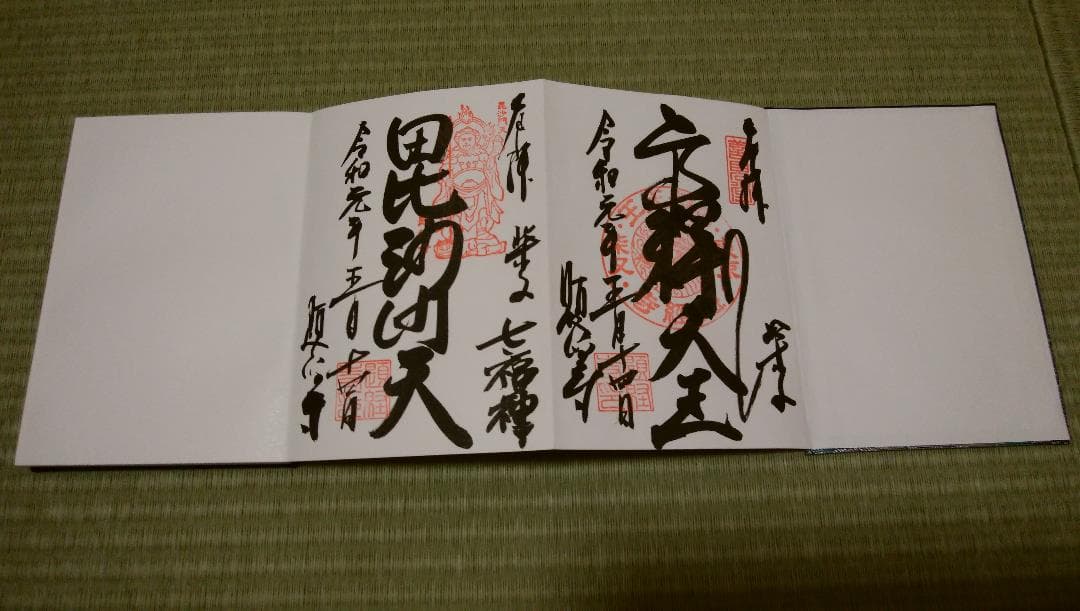 奉拝
帝釈天王
令和元年五月十四日
題経寺
奉拝
柴又七福神
毘沙門天
令和元年五月十四日
題経寺